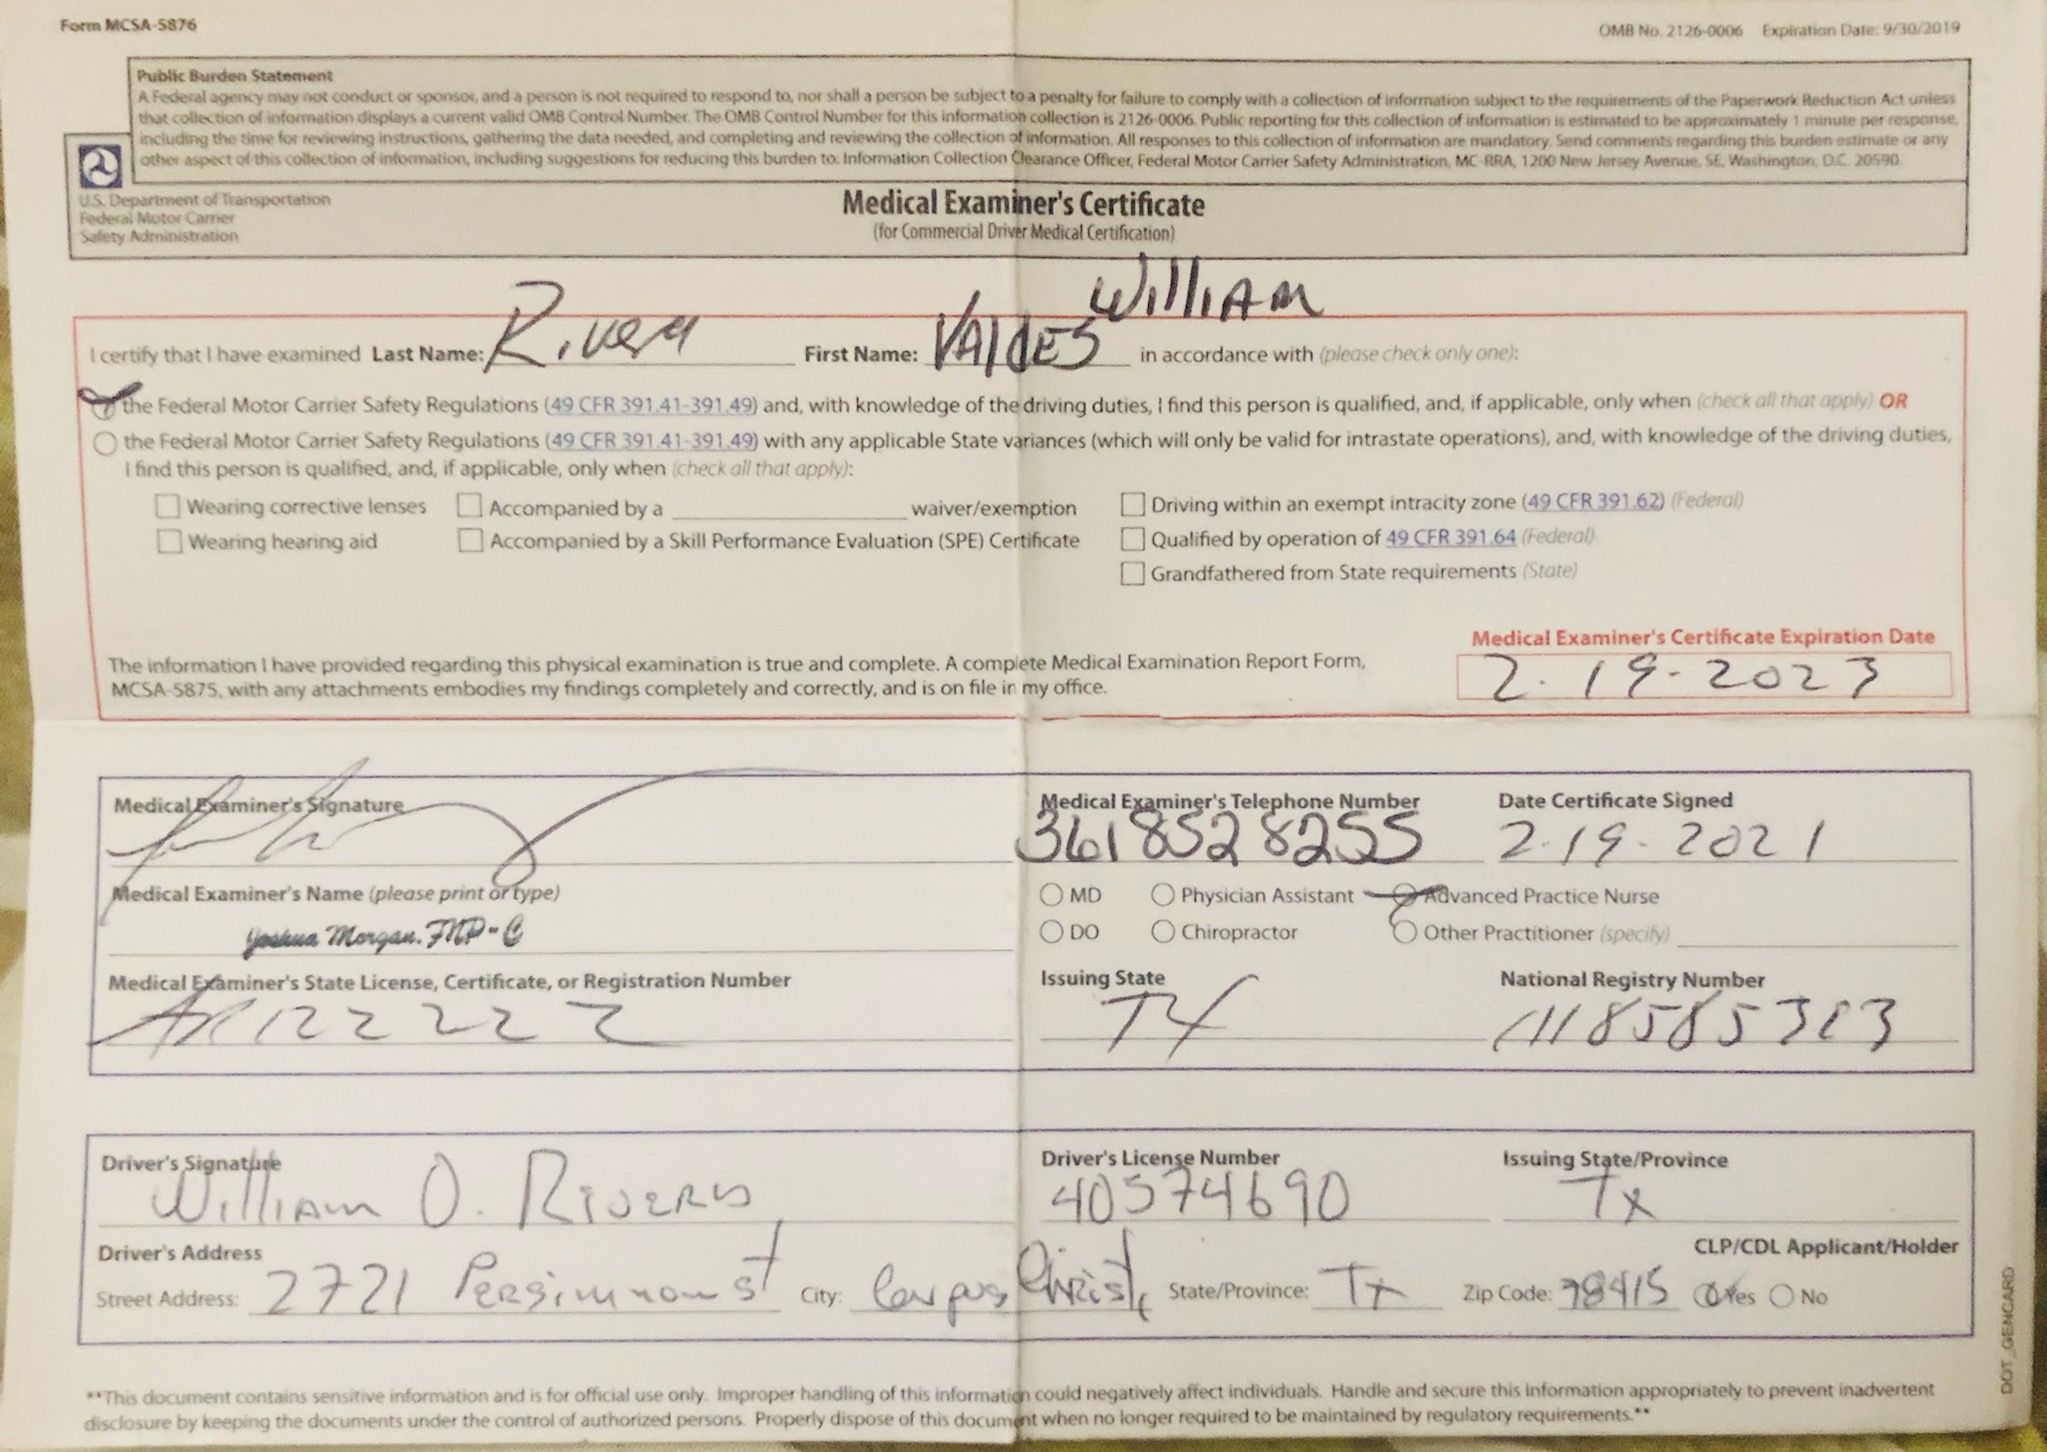 Form MCSA-5876
OMB No. 2126-0006 Expiration Date: 9/30/2019
Public Burden Statement
A Federal agency may not conduct or sponsor, and a person is not required to respond to, nor shall a person be subject to a penalty for failure to comply with a collection of information subject to the requirements of the Paperwork Reduction Act unless
that collection of information displays a current valid OMB Control Number. The OMB Control Number for this information collection is 2126-0006. Public reporting for this collection of information is estimated to be approximately 1 minute per response,
including the time for reviewing instructions, gathering the data needed, and completing and reviewing the collection of information. All responses to this collection of information are mandatory. Send comments regarding this burden estimate or any
other aspect of this collection of information, including suggestions for reducing this burden to: Information Collection Clearance Officer, Federal Motor Carrier Safety Administration, MC-RRA, 1200 New Jersey Avenue, SE, Washington, D.C. 20590.
U.S. Department of Transportation
Federal Motor Carrier
Safety Administration
Medical Examiner's Certificate
(for Commercial Driver Medical Certification)
William
I certify that I have examined Last Name: Rivera First Name: Valdes in accordance with (please check only one):
the Federal Motor Carrier Safety Regulations (49 CFR 391.41-391.49) and, with knowledge of the driving duties, I find this person is qualified, and, if applicable, only when (check all that apply) OR
the Federal Motor Carrier Safety Regulations (49 CFR 391.41-391.49) with any applicable State variances (which will only be valid for intrastate operations), and, with knowledge of the driving duties,
I find this person is qualified, and, if applicable, only when (check all that apply):
Wearing corrective lenses Accompanied by a waiver/exemption Driving within an exempt intracity zone (49 CFR 391.62) (Federal)
Wearing hearing aid Accompanied by a Skill Performance Evaluation (SPE) Certificate Qualified by operation of 49 CFR 391.64 (Federal)
Grandfathered from State requirements (State)
Medical Examiner's Certificate Expiration Date
The information I have provided regarding this physical examination is true and complete. A complete Medical Examination Report Form,
MCSA-5875, with any attachments embodies my findings completely and correctly, and is on file in my office.
2.19-2023
Medical Examiner's Signature Medical Examiner's Telephone Number Date Certificate Signed
361 852 8255 2.19.2021
Medical Examiner's Name (please print or type) MD Physician Assistant Advanced Practice Nurse
Joshua Morgan, FNP-C DO Chiropractor Other Practitioner (specify)
Medical Examiner's State License, Certificate, or Registration Number Issuing State National Registry Number
TX
Driver's Signature Driver's License Number Issuing State/Province
William O. Rivera 40574690 Tx
Driver's Address CLP/CDL Applicant/Holder
Street Address: 2721 Persimmon st City: Corpus Christi State/Province: Tx Zip Code: 78415 Yes No
DOT_GENCARD
**This document contains sensitive information and is for official use only. Improper handling of this information could negatively affect individuals. Handle and secure this information appropriately to prevent inadvertent
disclosure by keeping the documents under the control of authorized persons. Properly dispose of this document when no longer required to be maintained by regulatory requirements.**